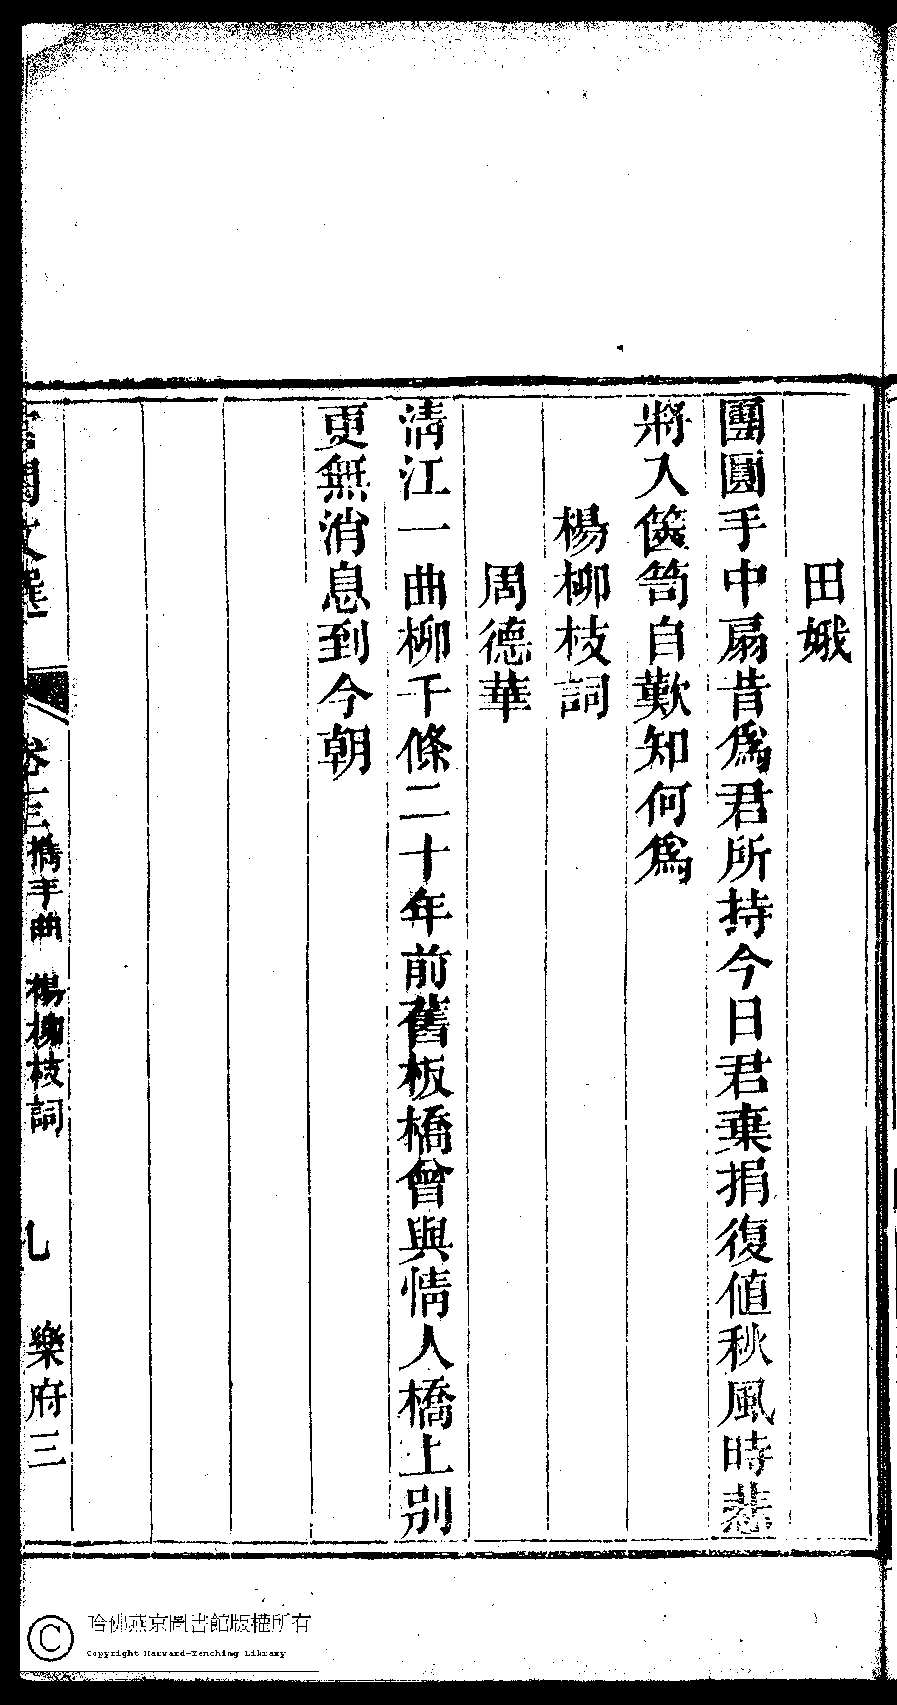 田娥
團圓手中扇昔為君所持今日君棄捐復值秋風時悲
將入篋笥自歎知何為
楊柳枝詞
周德華
清江一曲柳千條二十年前舊板橋曾與情人橋上別
更無消息到今朝
閨文選
卷三
攜手曲 楊柳枝詞
樂府三
哈佛燕京圖書館版權所有
Copyright Harvard-Yenching Library